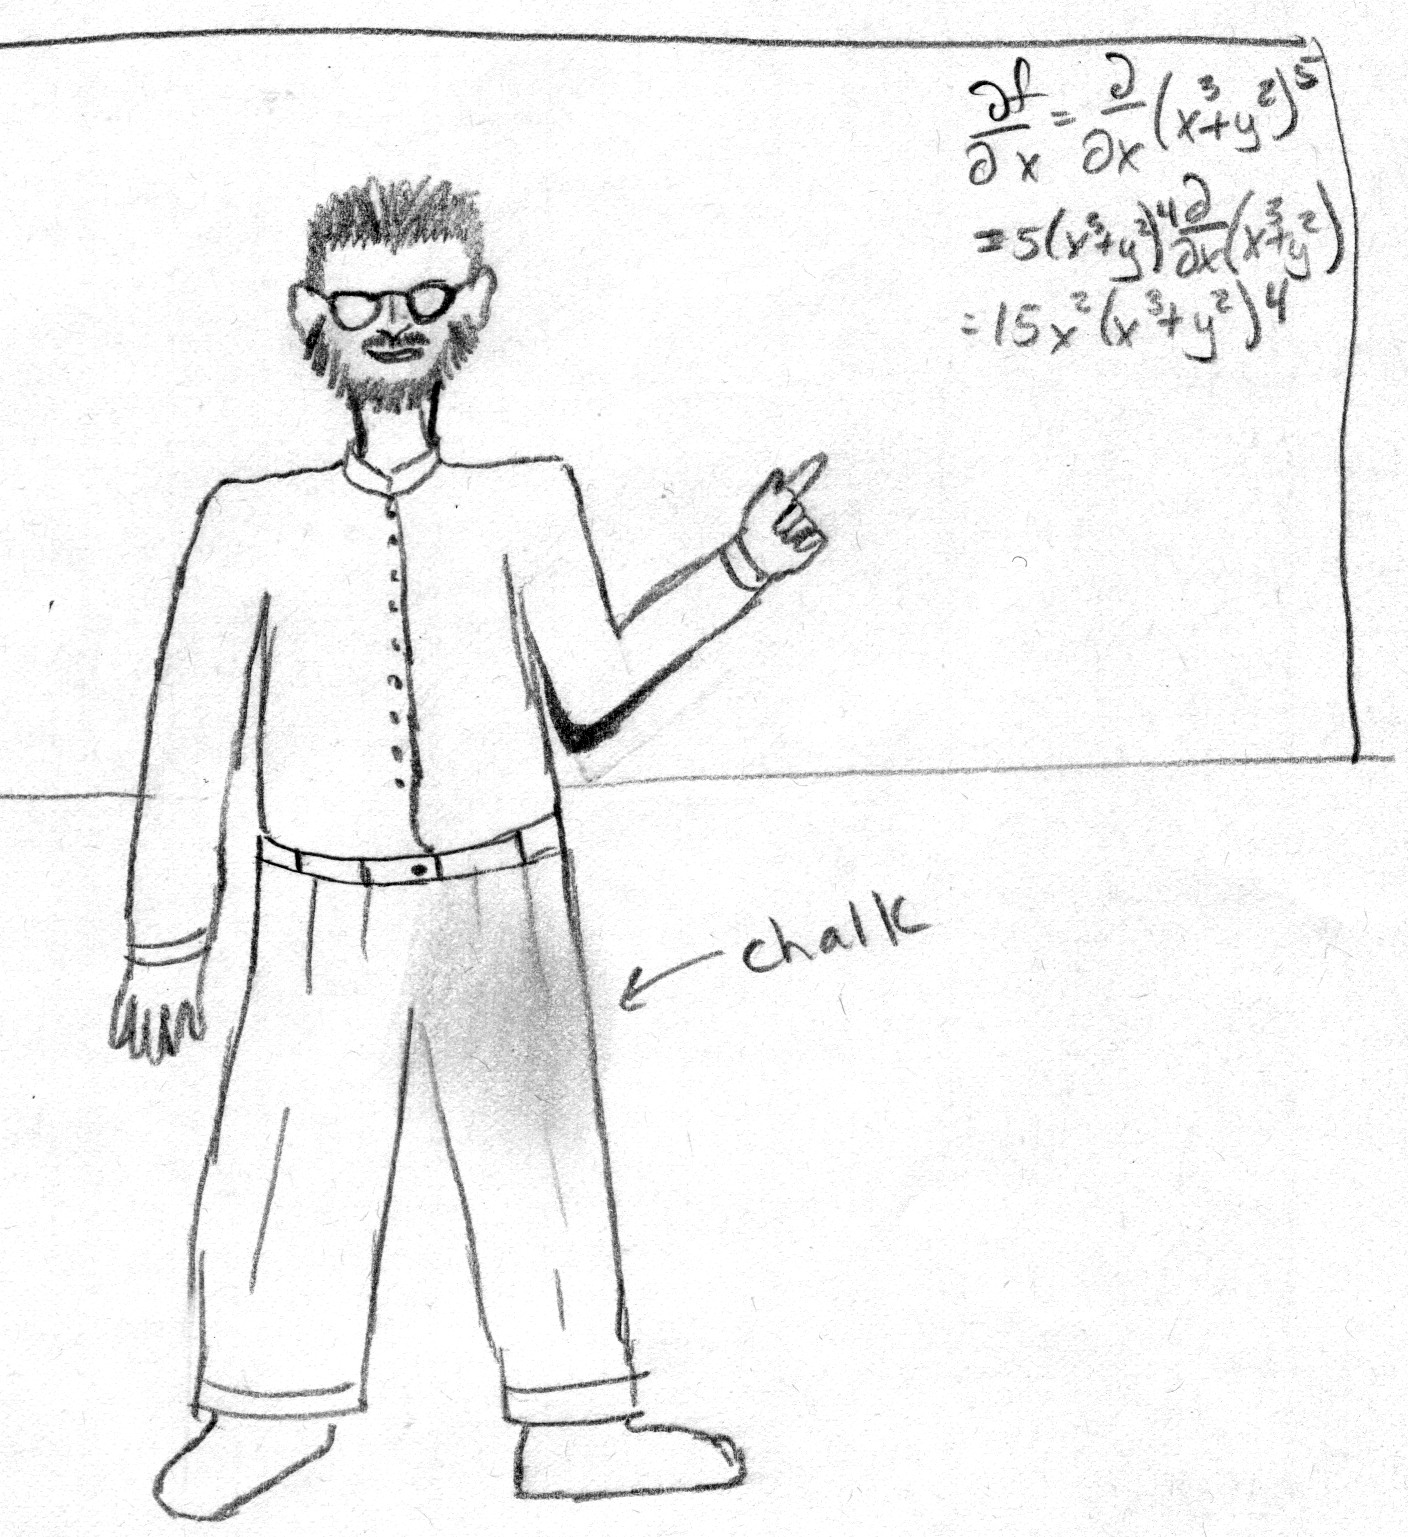 ∂f/∂x = ∂/∂x (x³+y²)⁵
= 5(x³+y²)⁴ ∂/∂x (x³+y²)
= 15x²(x³+y²)⁴
chalk